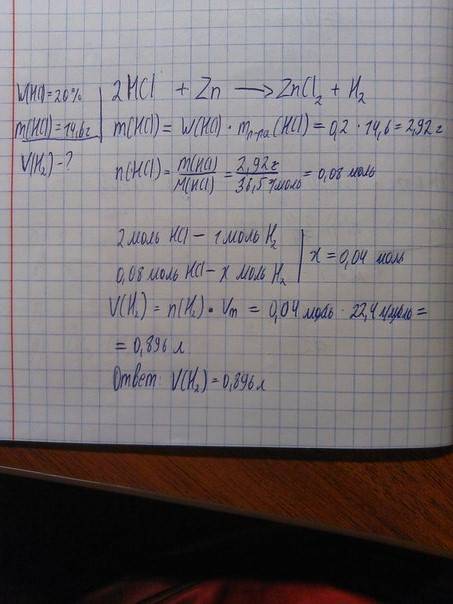 W(HCl)=20%
m(HCl)=14,6г
V(H₂)-?
2HCl + Zn ⟶ ZnCl₂ + H₂
m(HCl) = W(HCl) · mр-ра(HCl) = 0,2 · 14,6 = 2,92 г
n(HCl) = m(HCl)/M(HCl) = 2,92г/36,5г/моль = 0,08 моль
2 моль HCl – 1 моль H₂
0,08 моль HCl – x моль H₂ | x = 0,04 моль
V(H₂) = n(H₂) · Vm = 0,04 моль · 22,4 л/моль =
= 0,896 л
Ответ: V(H₂) = 0,896 л